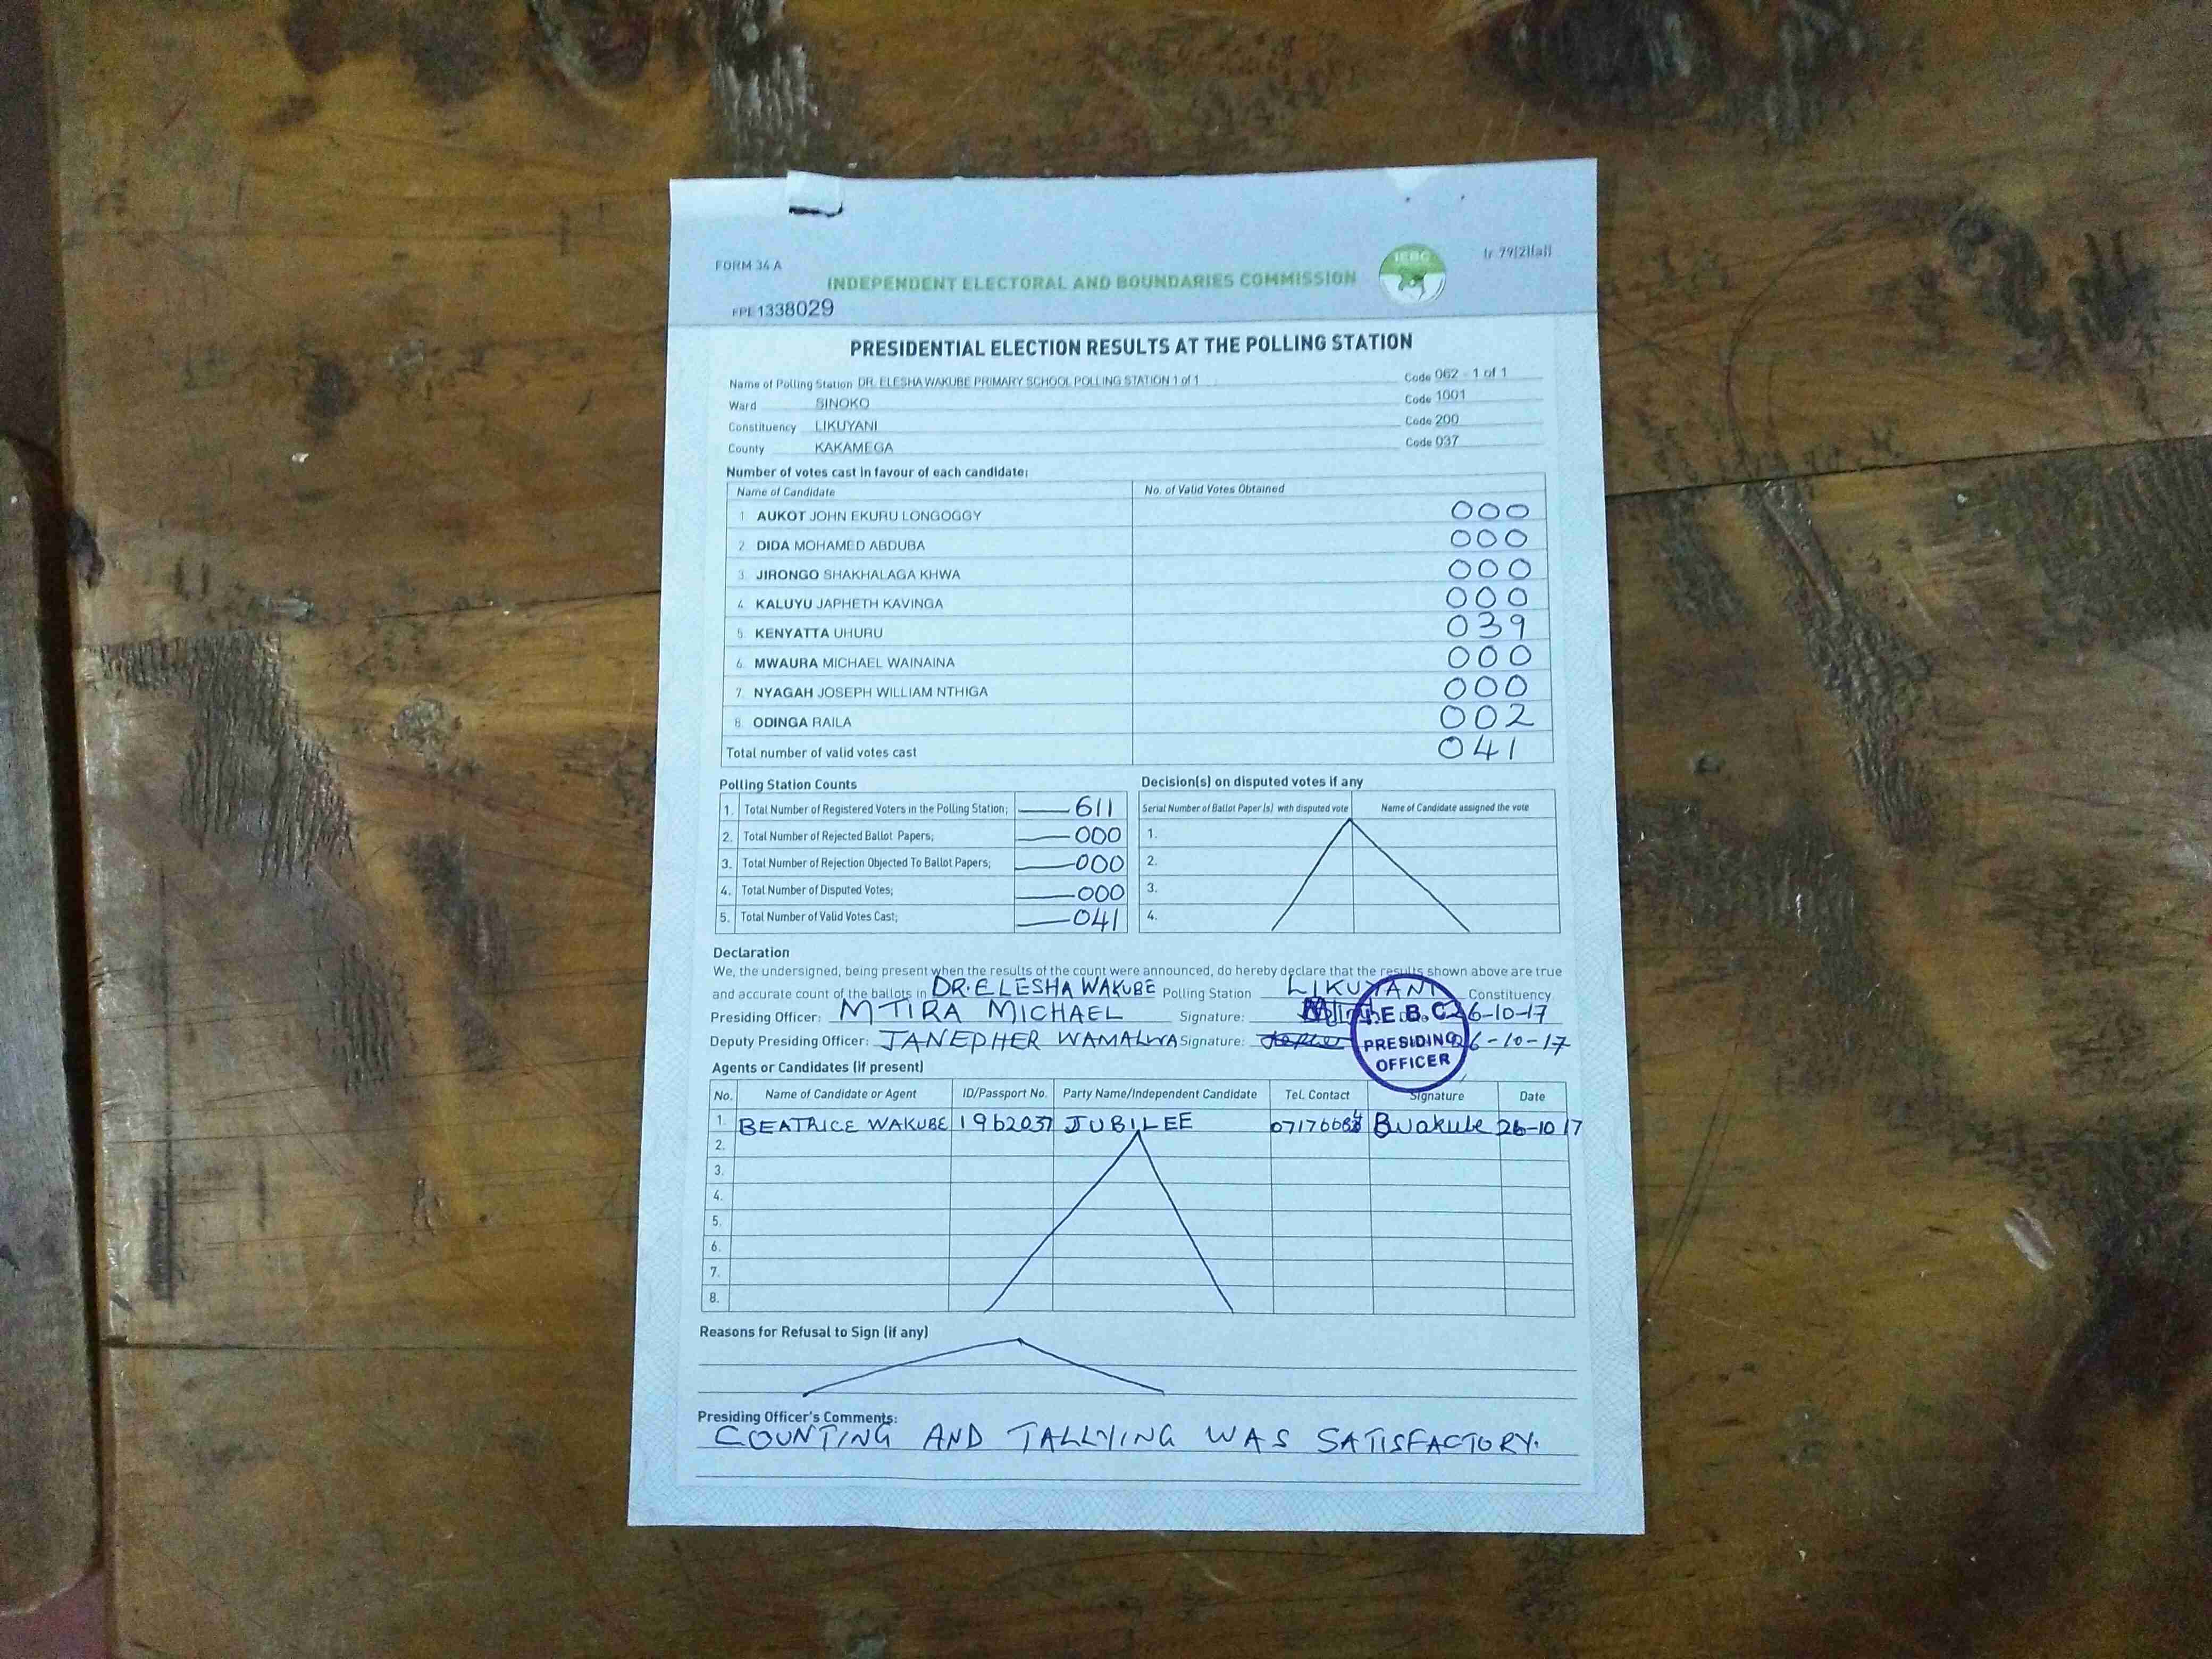 FORM 34 A
INDEPENDENT ELECTORAL AND BOUNDARIES COMMISSION
IEBC
FPE 1338029
PRESIDENTIAL ELECTION RESULTS AT THE POLLING STATION
Name of Polling Station DR. ELESHA WAKUBE PRIMARY SCHOOL POLLING STATION 1 of 1 Code 062 - 1 of 1
Ward SINOKO Code 1001
Constituency LIKUYANI Code 200
County KAKAMEGA Code 037
Number of votes cast in favour of each candidate:
Name of Candidate No. of Valid Votes Obtained
1. AUKOT JOHN EKURU LONGOGGY 000
2. DIDA MOHAMED ABDUBA 000
3. JIRONGO SHAKHALAGA KHWA 000
4. KALUYU JAPHETH KAVINGA 000
5. KENYATTA UHURU 039
6. MWAURA MICHAEL WAINAINA 000
7. NYAGAH JOSEPH WILLIAM NTHIGA 000
8. ODINGA RAILA 002
Total number of valid votes cast 041
Polling Station Counts
1. Total Number of Registered Voters in the Polling Station; 611
2. Total Number of Rejected Ballot Papers; 000
3. Total Number of Rejection Objected To Ballot Papers; 000
4. Total Number of Disputed Votes; 000
5. Total Number of Valid Votes Cast; 041
Decision(s) on disputed votes if any
Serial Number of Ballot Paper (s) with disputed vote Name of Candidate assigned the vote
1.
2.
3.
4.
Declaration
We, the undersigned, being present when the results of the count were announced, do hereby declare that the results shown above are true
and accurate count of the ballots in DR. ELESHA WAKUBE Polling Station LIKUYANI Constituency
Presiding Officer: MTIRA MICHAEL Signature: 26-10-17
Deputy Presiding Officer: JANEPHER WAMALWA Signature: 26-10-17
I.E.B.C
PRESIDING
OFFICER
Agents or Candidates (if present)
No. Name of Candidate or Agent ID/Passport No. Party Name/Independent Candidate Tel. Contact Signature Date
1. BEATRICE WAKUBE 1962037 JUBILEE Bwakube 26-10 17
2.
3.
4.
5.
6.
7.
8.
Reasons for Refusal to Sign (if any)
Presiding Officer's Comments:
COUNTING AND TALLYING WAS SATISFACTORY.